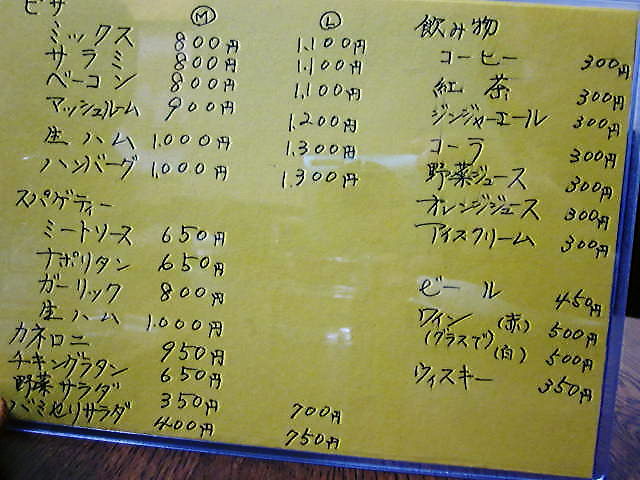 ピザ Ⓜ Ⓛ
ミックス 800円 1.100円
サラミ 800円 1.100円
ベーコン 800円 1.100円
マッシュルーム 900円 1.200円
生ハム 1.000円 1.300円
ハンバーグ 1.000円 1.300円
スパゲティー
ミートソース 650円
ナポリタン 650円
ガーリック 800円
生ハム 1.000円
カネロニ 950円
チキングラタン 650円
野菜サラダ 350円 700円
バミセリサラダ 400円 750円
飲み物
コーヒー 300円
紅茶 300円
ジンジャーエール 300円
コーラ 300円
野菜ジュース 300円
オレンジジュース 300円
アイスクリーム 300円
ビール 450円
ワイン (赤) 500円
(グラスで) (白) 500円
ウィスキー 350円